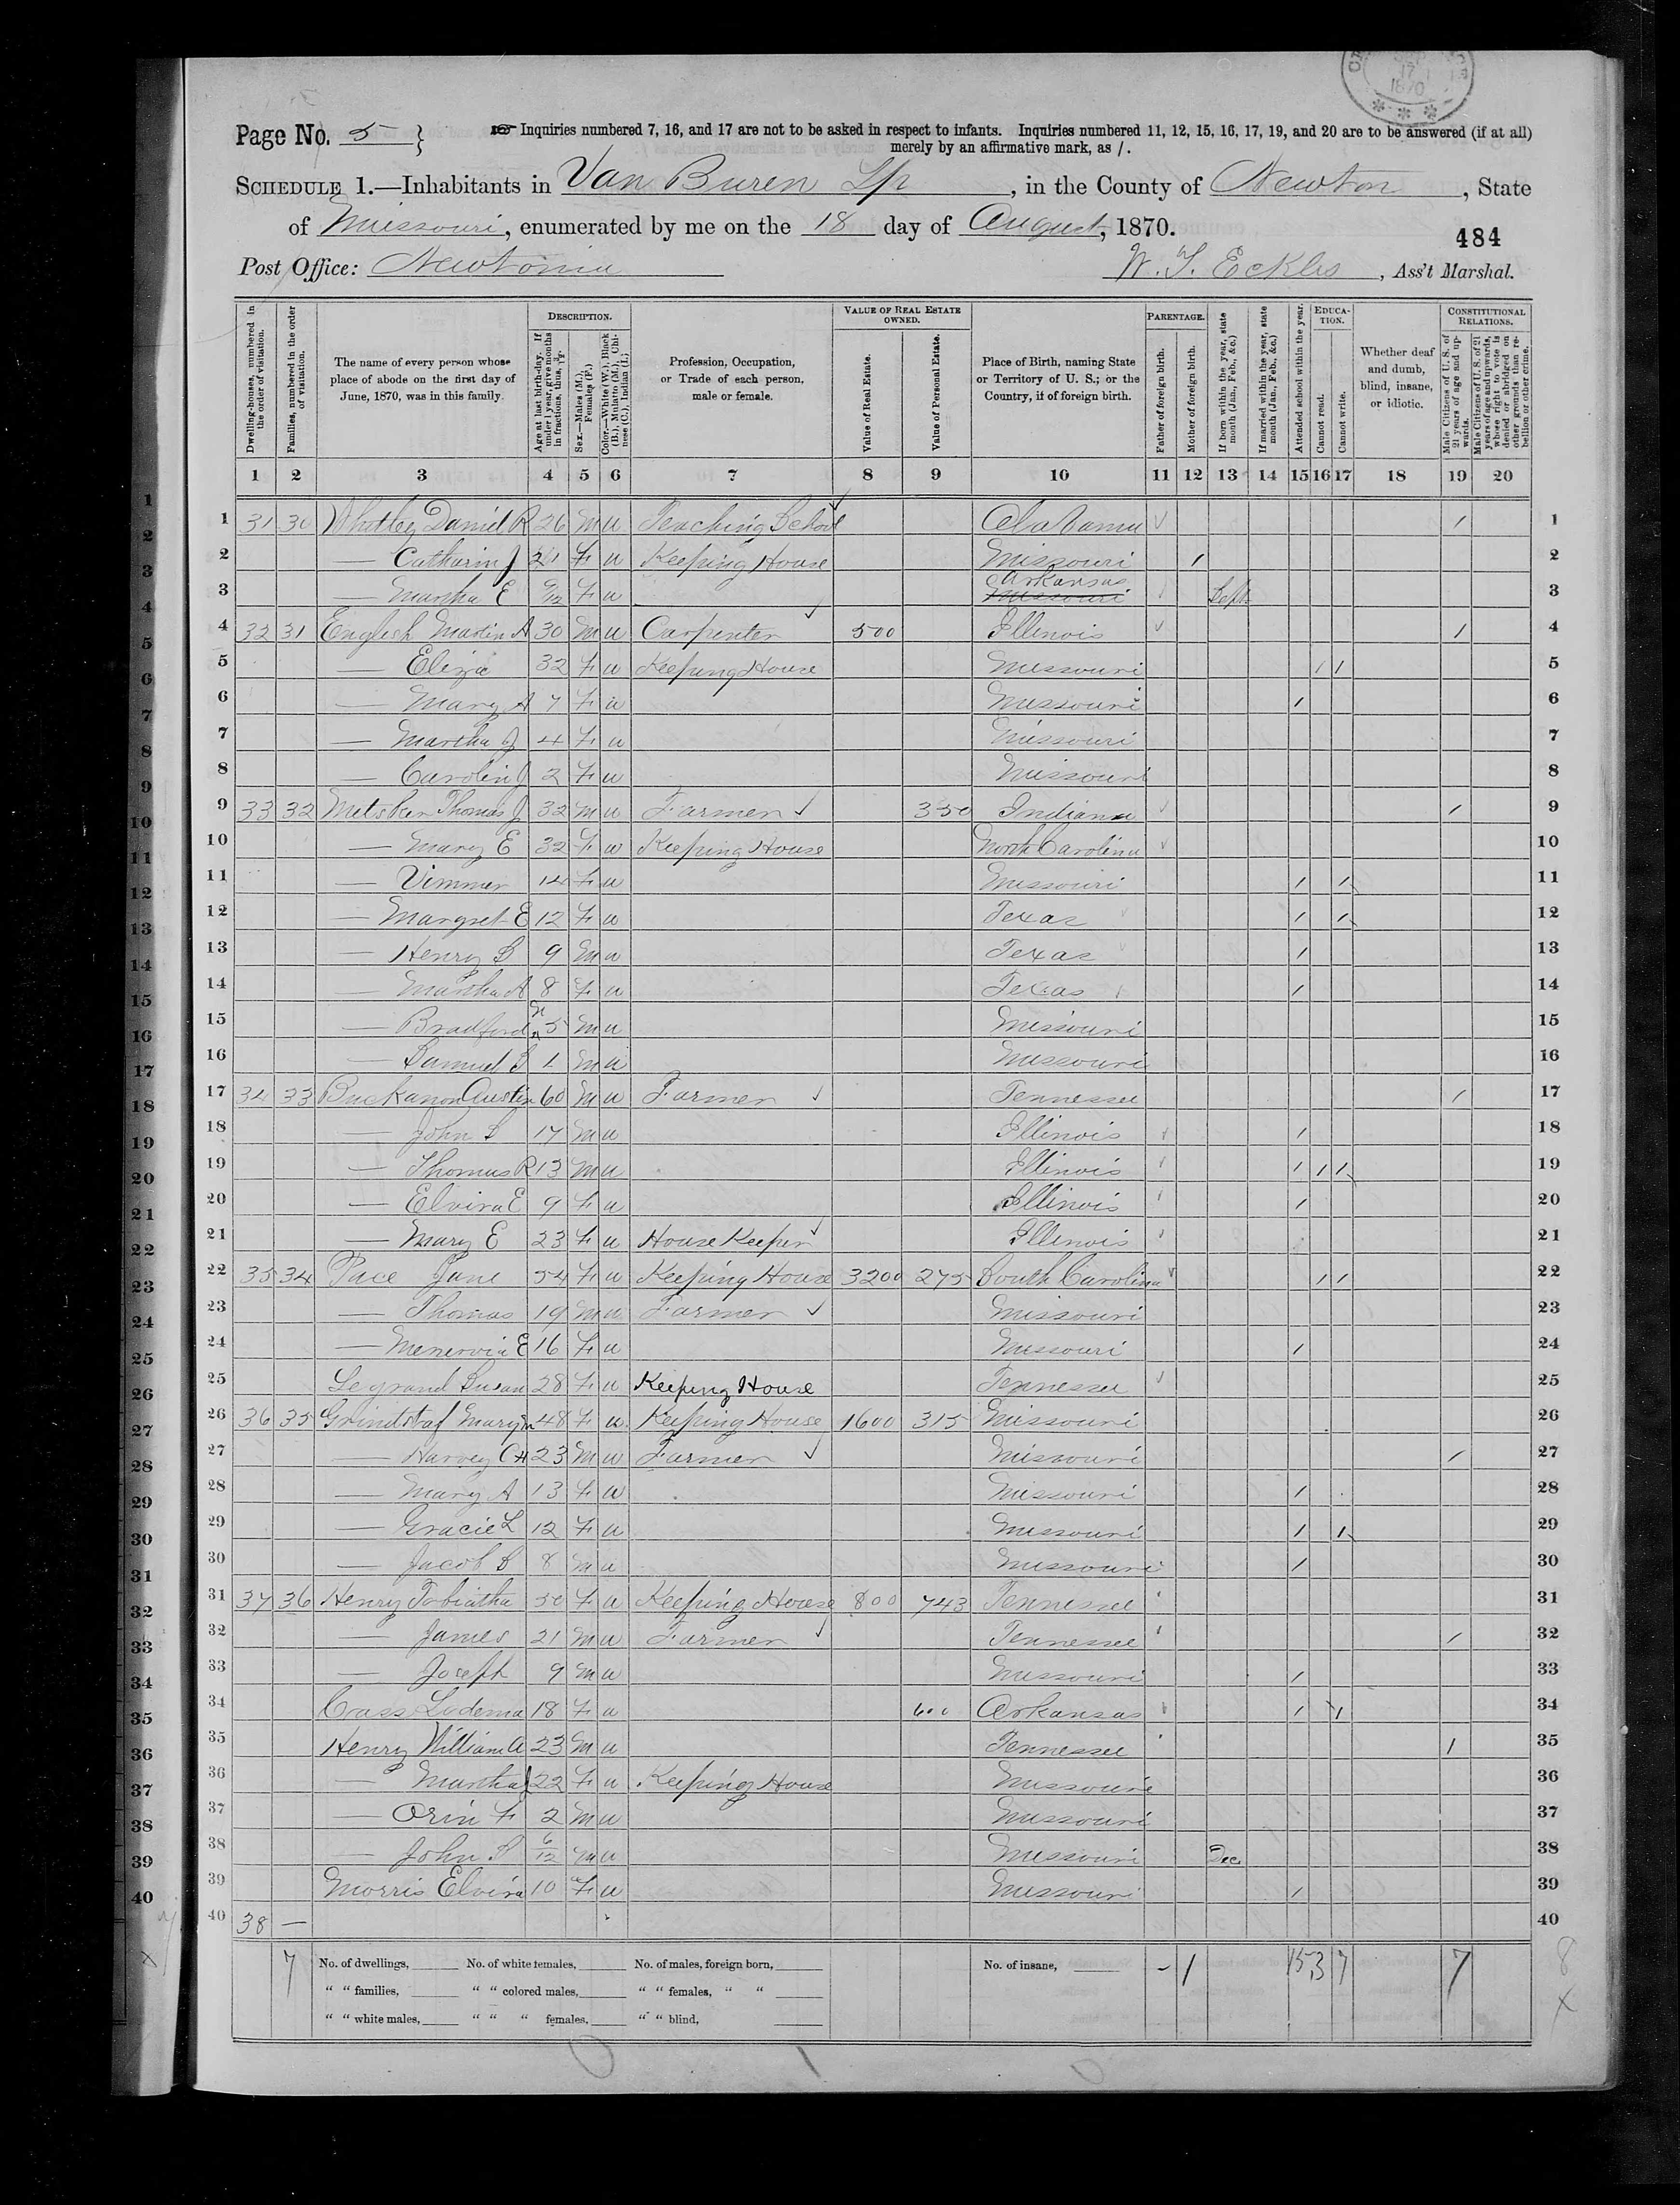 17
1870
* * *
Page No. 5 }
Inquiries numbered 7, 16, and 17 are not to be asked in respect to infants. Inquiries numbered 11, 12, 15, 16, 17, 19, and 20 are to be answered (if at all)
merely by an affirmative mark, as /.
SCHEDULE 1.—Inhabitants in Van Buren Tp, in the County of Newton, State
of Missouri, enumerated by me on the 18 day of August, 1870.
484
Post Office: Newtonia
W. S. Eckles, Ass't Marshal.
Dwelling-houses, numbered in the order of visitation.
Families, numbered in the order of visitation.
The name of every person whose place of abode on the first day of June, 1870, was in this family.
DESCRIPTION.
Age at last birth-day. If under 1 year, give months in fractions, thus, 3/12.
Sex.—Males (M.), Females (F.)
Color.—White (W.), Black (B.), Mulatto (M.), Chinese (C.), Indian (I.)
Profession, Occupation, or Trade of each person, male or female.
VALUE OF REAL ESTATE OWNED.
Value of Real Estate.
Value of Personal Estate.
Place of Birth, naming State or Territory of U. S.; or the Country, if of foreign birth.
PARENTAGE.
Father of foreign birth.
Mother of foreign birth.
If born within the year, state month (Jan., Feb., &c.)
If married within the year, state month (Jan., Feb., &c.)
Attended school within the year.
EDUCATION.
Cannot read.
Cannot write.
Whether deaf and dumb, blind, insane, or idiotic.
CONSTITUTIONAL RELATIONS.
Male Citizens of U. S. of 21 years of age and upwards.
Male Citizens of U. S. of 21 years of age and upwards, whose right to vote is denied or abridged on other grounds than rebellion or other crime.
1 2 3 4 5 6 7 8 9 10 11 12 13 14 15 16 17 18 19 20
1 31 30 Whatley Daniel R 26 M W Teaching School Alabama / 1
2 — Catharin J 21 F W Keeping House Missouri / 2
3 — Martha E 9/12 F W Arkansas Missouri Sept 3
4 32 31 English Martin A 30 M W Carpenter 500 Illinois / 4
5 — Eliza 32 F W Keeping House Missouri / / 5
6 — Mary A 7 F W Missouri / 6
7 — Martha J 4 F W Missouri 7
8 — Carolin J 2 F W Missouri 8
9 33 32 Metsker Thomas J 32 M W Farmer 350 Indiana / 9
10 — Mary E 32 F W Keeping House North Carolina 10
11 — Vimmer 14 F W Missouri / / 11
12 — Margret E 12 F W Texas / / 12
13 — Henry S 9 M W Texas / 13
14 — Martha A 8 F W Texas / 14
15 — Bradford 5 M W Missouri 15
16 — Samuel S 1 M W Missouri 16
17 34 33 Buckanon Austin 60 M W Farmer Tennessee / 17
18 — John S 17 M W Illinois / 18
19 — Thomas R 13 M W Illinois / / / 19
20 — Elvira E 9 F W Illinois / 20
21 — Mary E 23 F W House Keeper Illinois 21
22 35 34 Pace Jane 54 F W Keeping House 3200 275 South Carolina / / 22
23 — Thomas 19 M W Farmer Missouri 23
24 — Menervia E 16 F W Missouri / 24
25 Legrand Susan 28 F W Keeping House Tennessee 25
26 36 35 Grindstaf Mary M 48 F W Keeping House 1600 315 Missouri 26
27 — Harvey CH 23 M W Farmer Missouri / 27
28 — Mary A 13 F W Missouri / 28
29 — Gracie L 12 F W Missouri / / 29
30 — Jacob S 8 M W Missouri / 30
31 37 36 Henry Tabiatha 50 F W Keeping House 800 743 Tennessee 31
32 — James 21 M W Farmer Tennessee / 32
33 — Joseph 9 M W Missouri / 33
34 Cass Ludema 18 F W 600 Arkansas / / 34
35 Henry William A 23 M W Tennessee / 35
36 — Martha J 22 F W Keeping House Missouri 36
37 — Orin F 2 M W Missouri 37
38 — John S 6/12 M W Missouri Dec 38
39 Morris Elvira 10 F W Missouri / 39
40 38 — 40
7 No. of dwellings, No. of white females, No. of males, foreign born, No. of insane, - 1 15 3 7 7
" " families, " " colored males, " " females, " "
" " white males, " " " females, " " blind,